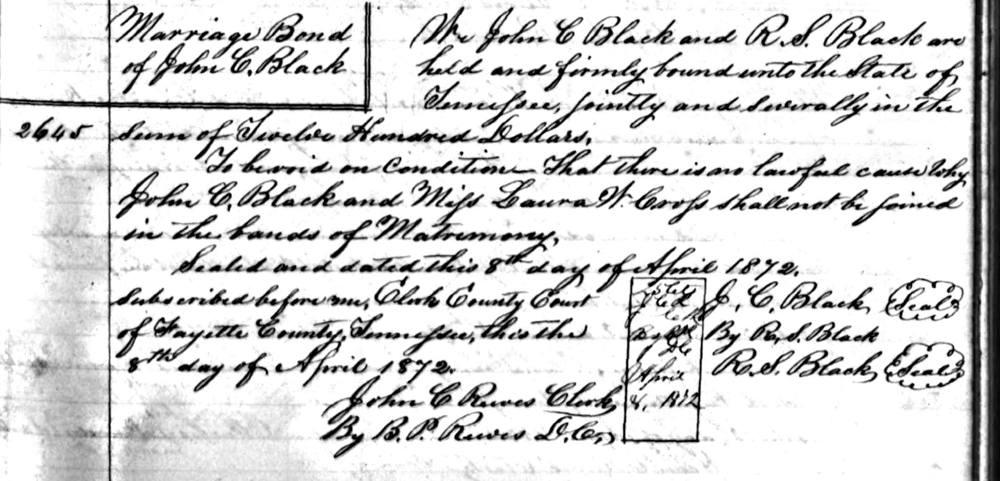 Marriage Bond
of John C. Black
We John C Black and R. S. Black are
held and firmly bound unto the State of
Tennessee, jointly and severally in the
2645
sum of Twelve Hundred Dollars.
To be void on condition That there is no lawful cause why
John C. Black and Miss Laura W. Cross shall not be joined
in the bands of Matrimony.
Sealed and dated this 8th day of April 1872.
Subscribed before me, Clerk County Court
of Fayette County, Tennessee, this the
8th day of April 1872.
John C Reeves Clerk
By B. P. Reeves D.C.
April
8, 1872
J. C. Black Seal
By R. S. Black
R. S. Black Seal